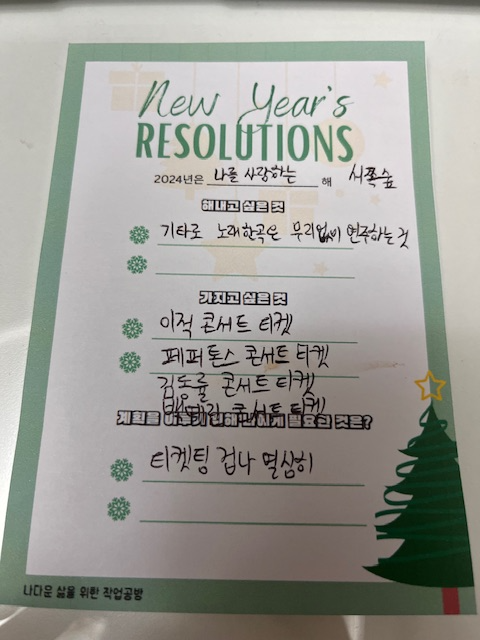 New Year's
RESOLUTIONS
2024년은 나를 사랑하는 해 서쪽숲
해내고 싶은 것
기타로 노래한곡은 무리없이 연주하는 것
가지고 싶은 것
이적 콘서트 티켓
페퍼톤스 콘서트 티켓
김동률 콘서트 티켓
콘서트 티켓
계획을 이루기 위해 나에게 필요한 것은?
티켓팅 겁나 열심히
나다운 삶을 위한 작업공방